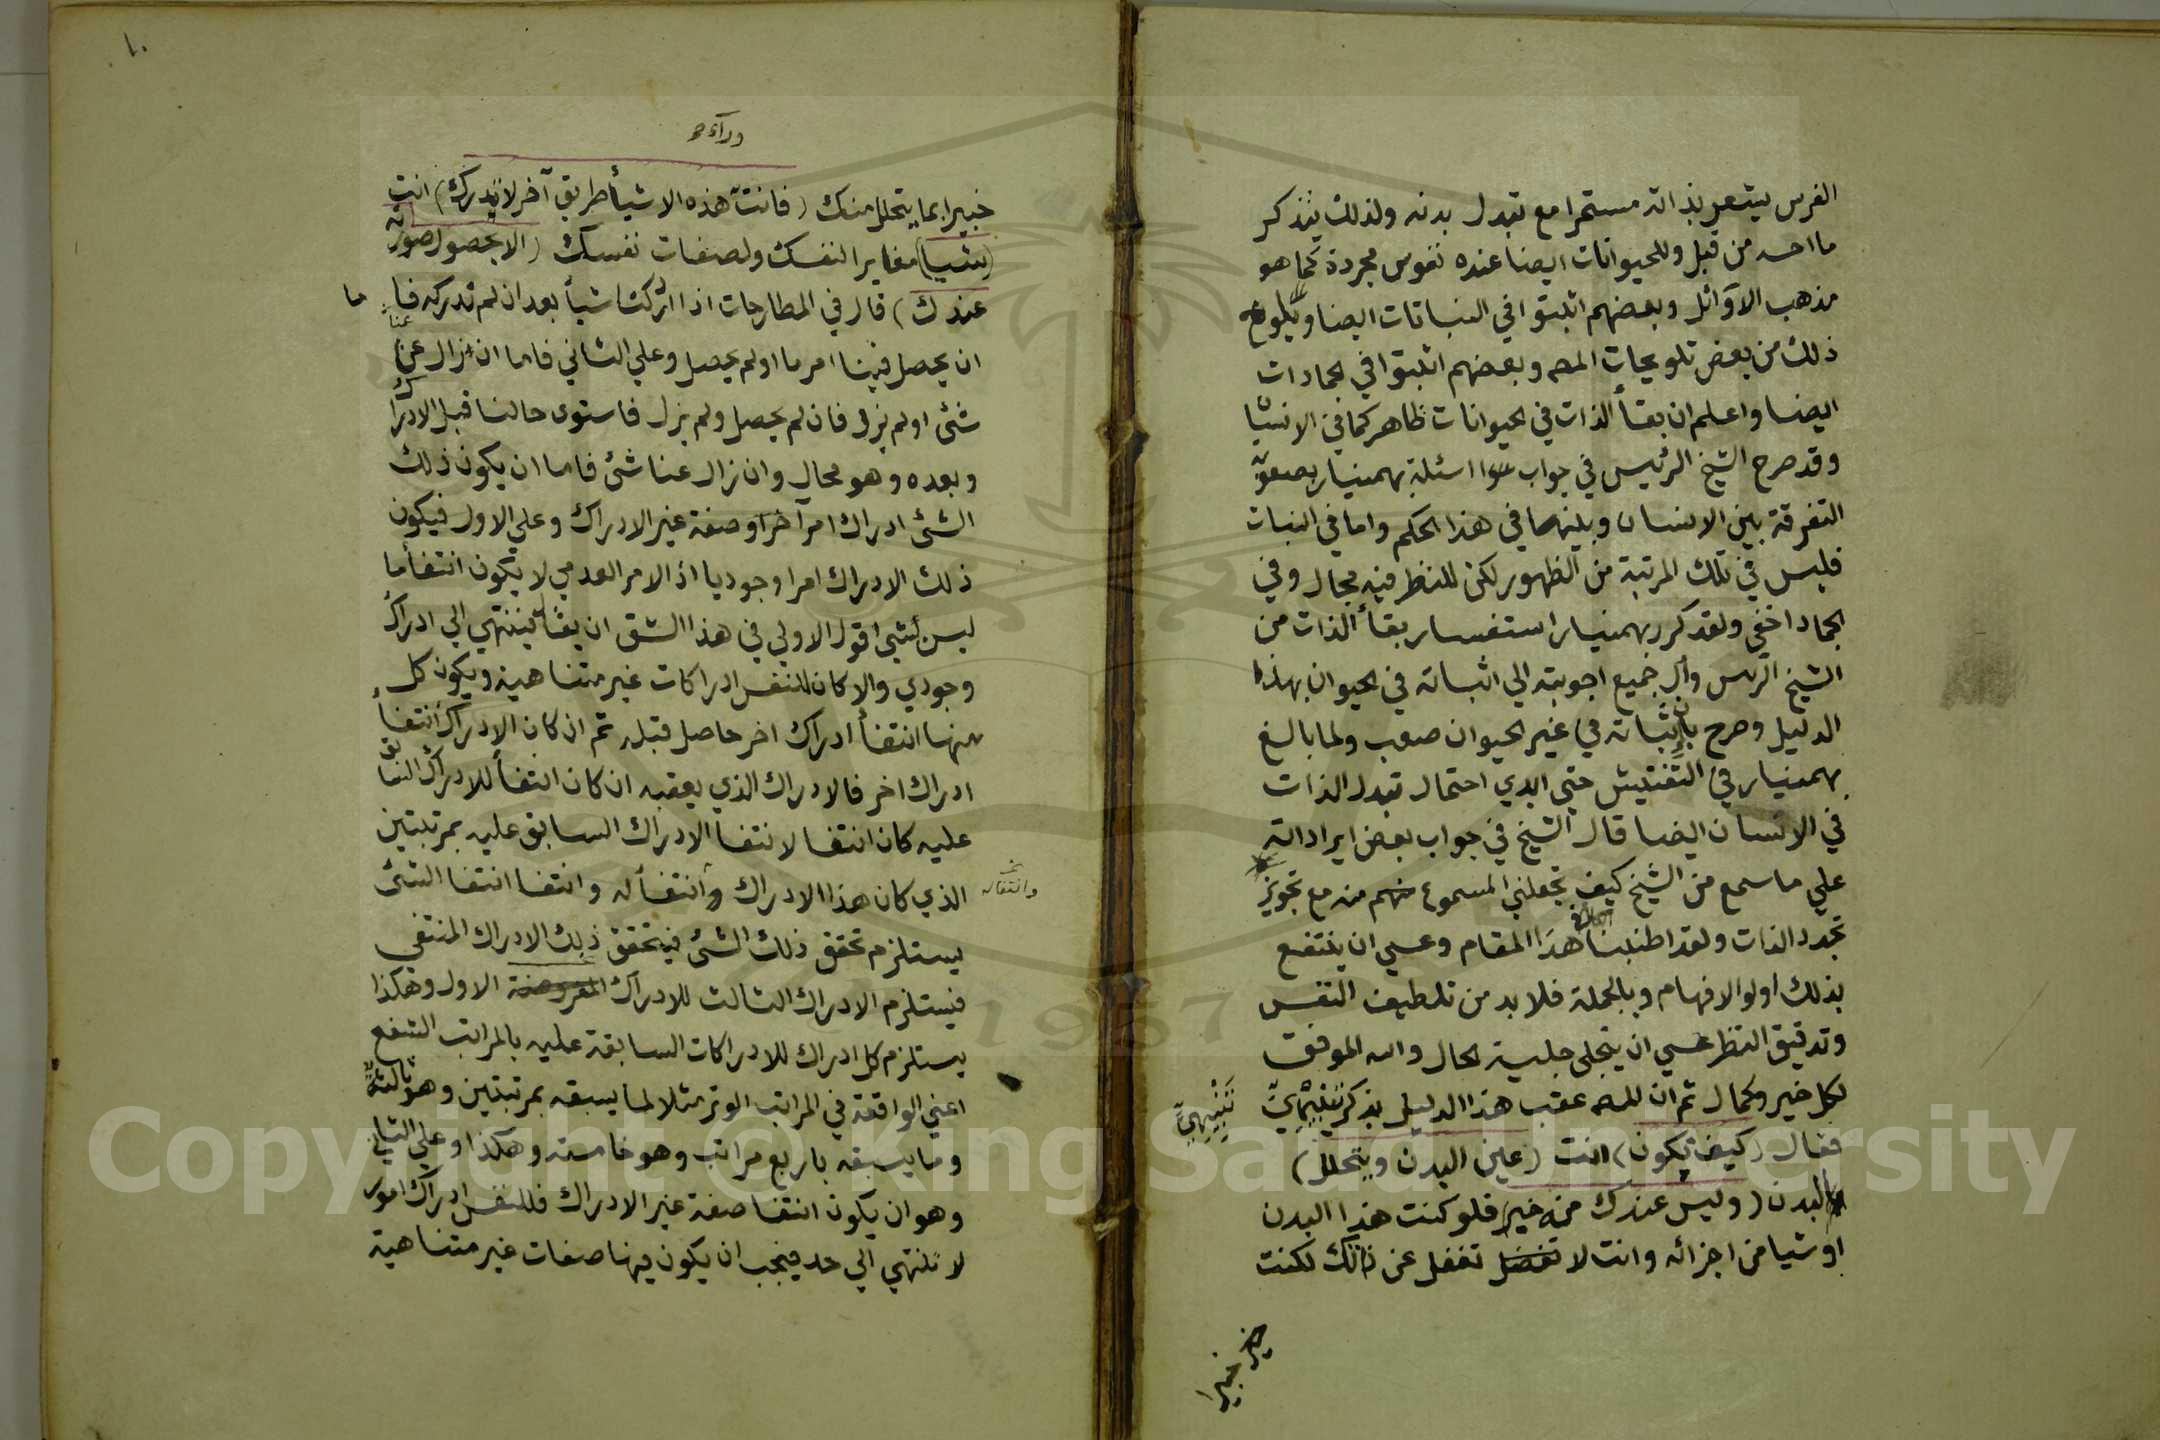 الفرس يشعر بذاته مستمرا مع تبدل بدنه ولذلك يتذكر
ما احسه من قبل وللحيوانات ايضا عنده نفوس مجردة كما هو
مذهب الاوائل وبعضهم اثبتوا في النباتات ايضا ويلوح
ذلك من بعض تلويحات المصه وبعضهم اثبتوا في الجمادات
ايضا واعلم ان بقأ الذات في الحيوانات ظاهر كما في الانسان
وقد صرح الشيخ الرئيس في جواب اسئلة بهمنيار بصعوبة
التفرقة بين الانسان وبينهما في هذا الحكم واما في النبات
فليس في تلك المرتبة من الظهور لكن للنظر فيه مجال وفي
الجماد اخفي ولقد كرر بهمنيار استفسار بقأ الذات من
الشيخ الرئيس وآل جميع اجوبته الي اثباته في الحيوان بهذا
الدليل وصرح بان اثباته في غير الحيوان صعب ولما بالغ
بهمنيار في التفتيش حتي ابدي احتمال تبدل الذات
في الانسان ايضا قال الشيخ في جواب بعض ايراداته
علي ما سمع من الشيخ كيف تجعلني المسموع منهم منه مع تجويز
تجدد الذات ولقد اطنبنا الكلام في هذا المقام وعسي ان ينتفع
بذلك اولوا الافهام وبالجملة فلا بد من تلطيف النفس
وتدقيق النظر عسي ان يتجلي جلية الحال والله الموفق
لكل خير وكمال ثم ان المصه عقب هذا الدليل بذكر تنبيهي
تنبيهي
فقال (كيف تكون) انت (عين البدن ويتحلل)
البدن (وليس عندك منه خبر) فلو كنت هذا البدن
او شيا من اجزائه وانت لا تغفل عن ذاتك لكنت
خبيرا
١٠
ورآء
خبيرا بما يتحلل منك (فانت هذه الاشيأ طريق آخر لا تدرك) انت
(شيا) مغايرا لنفسك ولصفات نفسك (الا بحصول صورته
عندك) قال في المطارحات اذا ادركنا شيأ بعد ان لم ندركه فاما
ان يحصل فينا امر ما او لم يحصل وعلي الثاني فاما ان زال عنا
شئ او لم يزل فان لم يحصل ولم يزل فاستوي حالنا قبل الادراك
وبعده وهو محال وان زال عنا شئ فاما ان يكون ذلك
الشئ ادراك امر آخر او صفة غير الادراك وعلي الاول فيكون
ذلك الادراك امرا وجوديا اذ الامر العدمي لا يكون انتفأ ما
ليس بشي اقول الاولي في هذا الشق ان يقال فينتهي الي ادراك
وجودي والا كان للنفس ادراكات غير متناهية ويكون كل
منها انتفأ ادراك اخر حاصل قبله ثم ان كان الادراك انتفأ
ادراك اخر فالادراك الذي يعقبه ان كان انتفأ للادراك السابق
عليه كان انتفا لانتفا الادراك السابق عليه بمرتبتين
الذي كان هذا الادراك انتفأ له وانتفا انتفا الشئ
يستلزم تحقق ذلك الشئ فيتحقق ذلك الادراك المنتفي
فيستلزم الادراك الثالث للادراك الاول وهكذا
يستلزم كل ادراك للادراكات السابقة عليه بالمراتب الشفع
اعني الواقعة في المراتب الوتر مثلا لما يسبقه بمرتبتين وهو ثالثه
وما يسبقه باربع مراتب وهو خامسه وهكذا وعلي الثاني
وهو ان يكون انتفا صفة غير الادراك فللنفس ادراك امور
لا تنتهي الي حد فيجب ان يكون فيها صفات غير متناهية
1957
Copyright © King Saud University